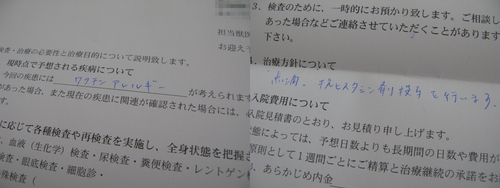 担当獣医
お迎え
検査・治療の必要性と治療目的について説明致します。
現時点で予想される疾病について
今回の疾患には ワクチンアレルギー が考えられます
があった場合、また現在の疾患に関連が確認された場合には、
に応じて各種検査や再検査を実施し、全身状態を把握さ
、血液（生化学）検査・尿検査・糞便検査・レントゲン
検査・眼底検査・細胞診・
殊検査（
3．検査のために、一時的にお預かり致します。ご相談し
あった場合などご連絡させていただくことがあります
下さい。
．治療方針について
点滴、抗ヒスタミン剤投与を行います。
入院費用について
入院見積書のとおり、お見積り申し上げます。
態によっては、予想日数よりも長期間の日数や費用が
原則として１週間ごとにご精算と治療継続の承諾をお
．あらかじめ内金